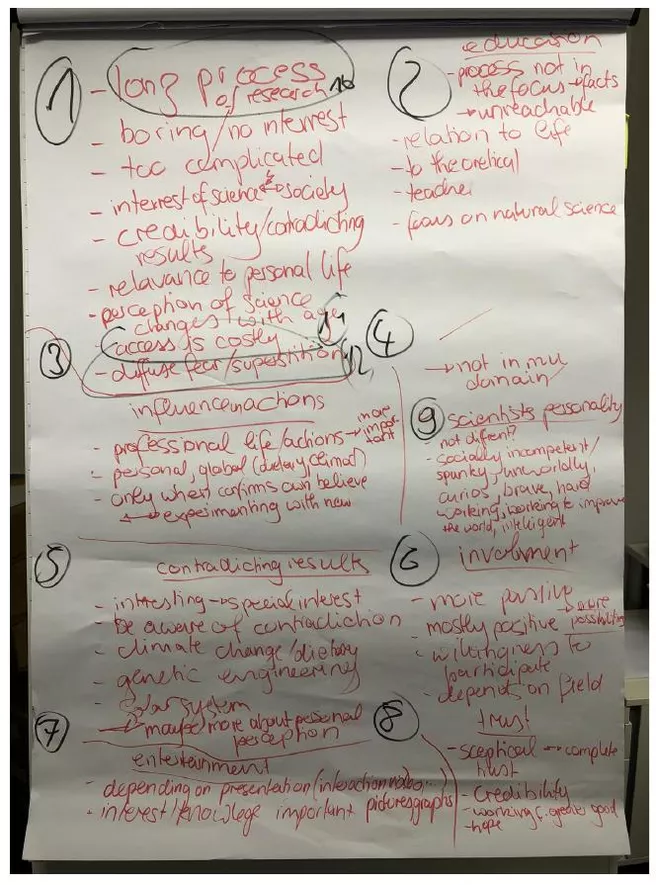 1
- long process
of research 10
- boring/no interest
- too complicated
- interest of science ↔ society
- credibility/contradicting
results
- relevance to personal life
- perception of science
changes with age
- access is costly 11
- diffuse fear/superstition 12
2
education
- process not in
the focus → facts
→ unreachable
- relation to life
- to theoretical
- teacher
- focus on natural science
3
influence in actions
- professional life/actions → more
impor
tant
- personal, global (dietary, climat)
- only when confirms own believe
↔ experimenting with new
4
→ not in mu
domain
5
contradicting results
- intresting → special interest
- be aware of contradiction
- climate change/dietary
- genetic engineering
- solar system
→ maybe more about personal
perception
6
involvment
- more passive
- mostly positive → more
possibilities
- willingness to
participate
- depends on field
7
entertainment
- depending on presentation (interaction,
- interest/knowlege important pictures graphs
8
trust
- sceptical ↔ complete
trust
- credibility
- working f. greater good
- hope
9
scientists personality
not diffrent?
- socially incompetent/
spunky, unworldly,
curios, brave, hard
working, working to improve
the world, intelligent